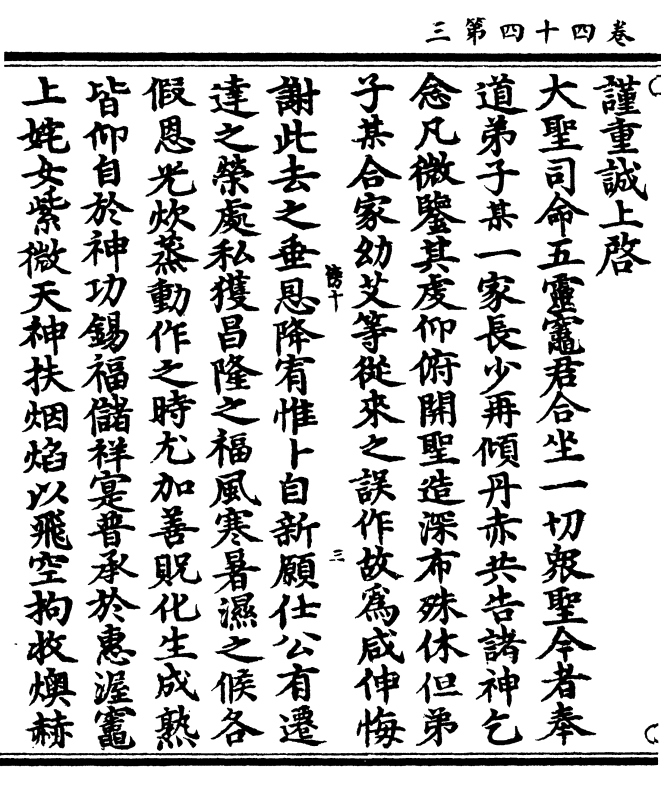 卷四十四第三
謹重誠上啓
大聖司命五靈竈君合坐一切衆聖今者奉
道弟子某一家長少再傾丹赤共告諸神乞
念凡微鑒其虔仰俯開聖造深布殊休但弟
子某合家幼艾等從來之誤作故爲咸伸悔
謝此去之垂恩降宥惟卜自新願仕公有遷
達之榮處私獲昌隆之福風寒暑濕之候各
假恩光炊蒸動作之時尤加善貺化生成熟
皆仰自於神功錫福儲祥寔普承於惠渥竈
上姹女紫微天神扶烟焰以飛空拘收燠赫
三